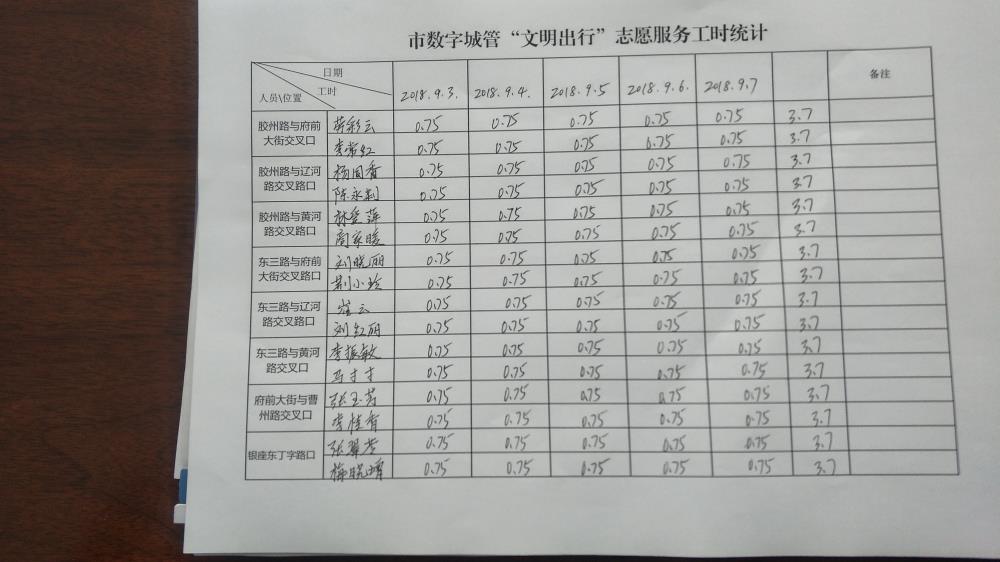 市数字城管“文明出行”志愿服务工时统计
日期
工时
人员\位置
2018.9.3. 2018.9.4. 2018.9.5 2018.9.6. 2018.9.7 备注
胶州路与府前大街交叉口 彩云 0.75 0.75 0.75 0.75 0.75 3.7
李常红 0.75 0.75 0.75 0.75 0.75 3.7
胶州路与辽河路交叉路口 杨国香 0.75 0.75 0.75 0.75 0.75 3.7
陈永利 0.75 0.75 0.75 0.75 0.75 3.7
胶州路与黄河路交叉路口 林爱萍 0.75 0.75 0.75 0.75 0.75 3.7
周家暖 0.75 0.75 0.75 0.75 0.75 3.7
东三路与府前大街交叉路口 刘晓丽 0.75 0.75 0.75 0.75 0.75 3.7
荆小玲 0.75 0.75 0.75 0.75 0.75 3.7
东三路与辽河路交叉路口 崔云 0.75 0.75 0.75 0.75 0.75 3.7
刘红丽 0.75 0.75 0.75 0.75 0.75 3.7
东三路与黄河路交叉口 李振敏 0.75 0.75 0.75 0.75 0.75 3.7
马才才 0.75 0.75 0.75 0.75 0.75 3.7
府前大街与曹州路交叉口 张玉芳 0.75 0.75 0.75 0.75 0.75 3.7
李桂香 0.75 0.75 0.75 0.75 0.75 3.7
银座东丁字路口 张翠芳 0.75 0.75 0.75 0.75 0.75 3.7
梅晓峰 0.75 0.75 0.75 0.75 0.75 3.7